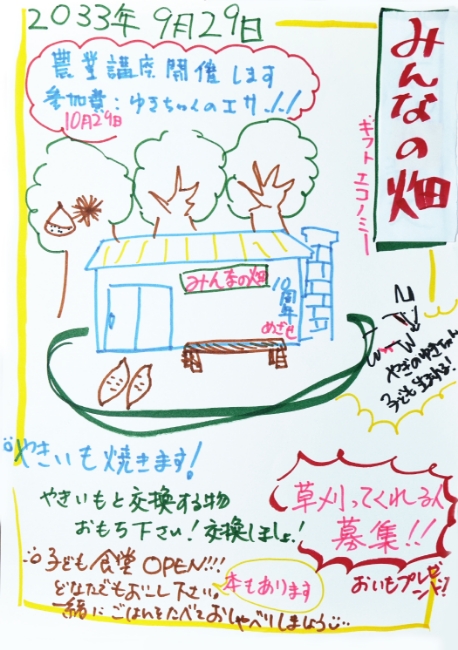 2033年 9月29日
みんなの畑
ギフト エコノミー
農業講座開催します
参加費:ゆきちゃんのエサ!!!
10月29日
みんなの畑
10周年
めざせ
やぎのゆきちゃん
子ども生まれる!
やきいも焼きます!
やきいもと交換する物
おもち下さい!交換しましょ!
草刈ってくれる人
募集!!
おいもプレゼント!
子ども食堂 OPEN!!!
どなたでもおこし下さい。
本もあります
一緒にごはんをたべておしゃべりしましょう